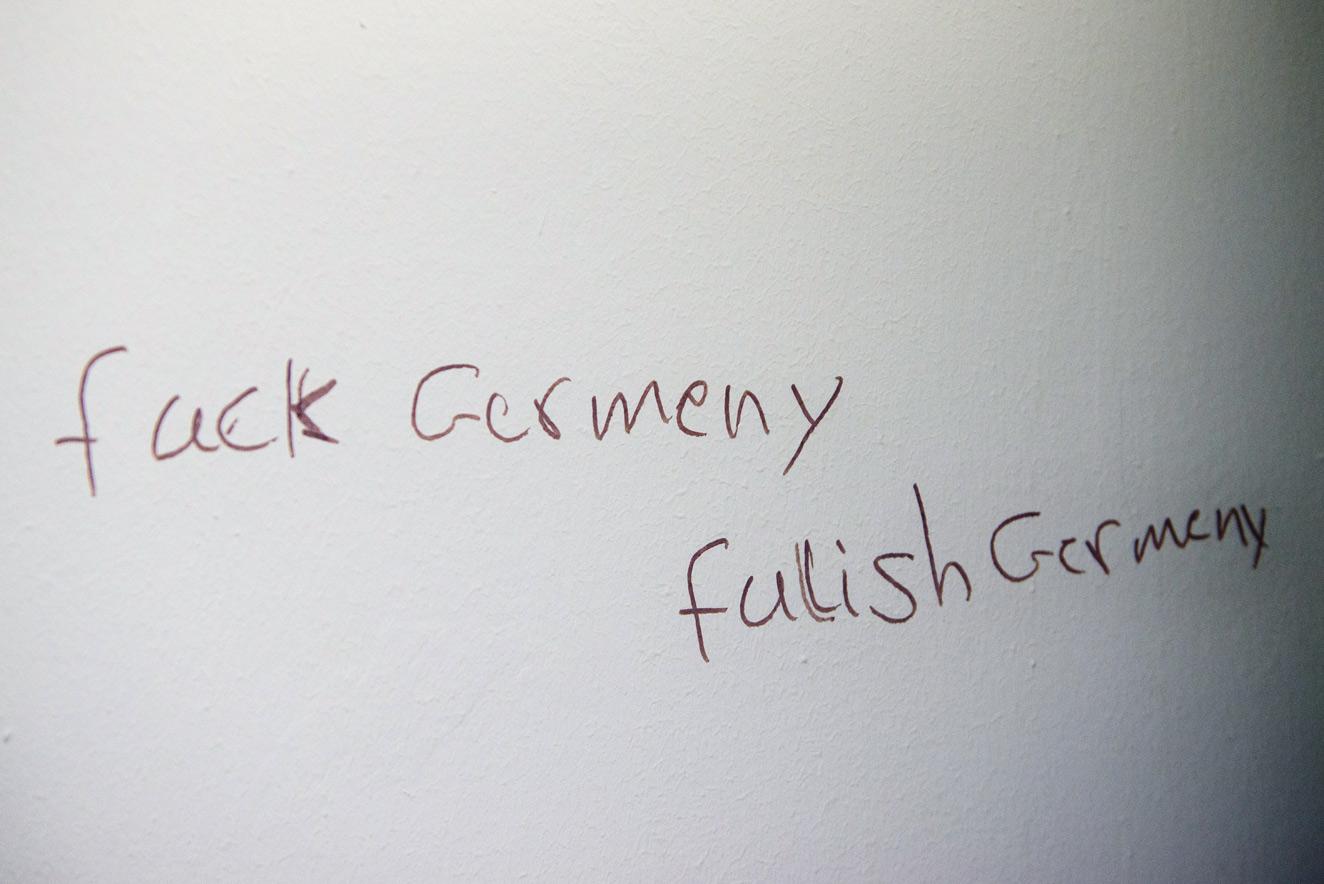 fuck Germeny
fullish Germeny